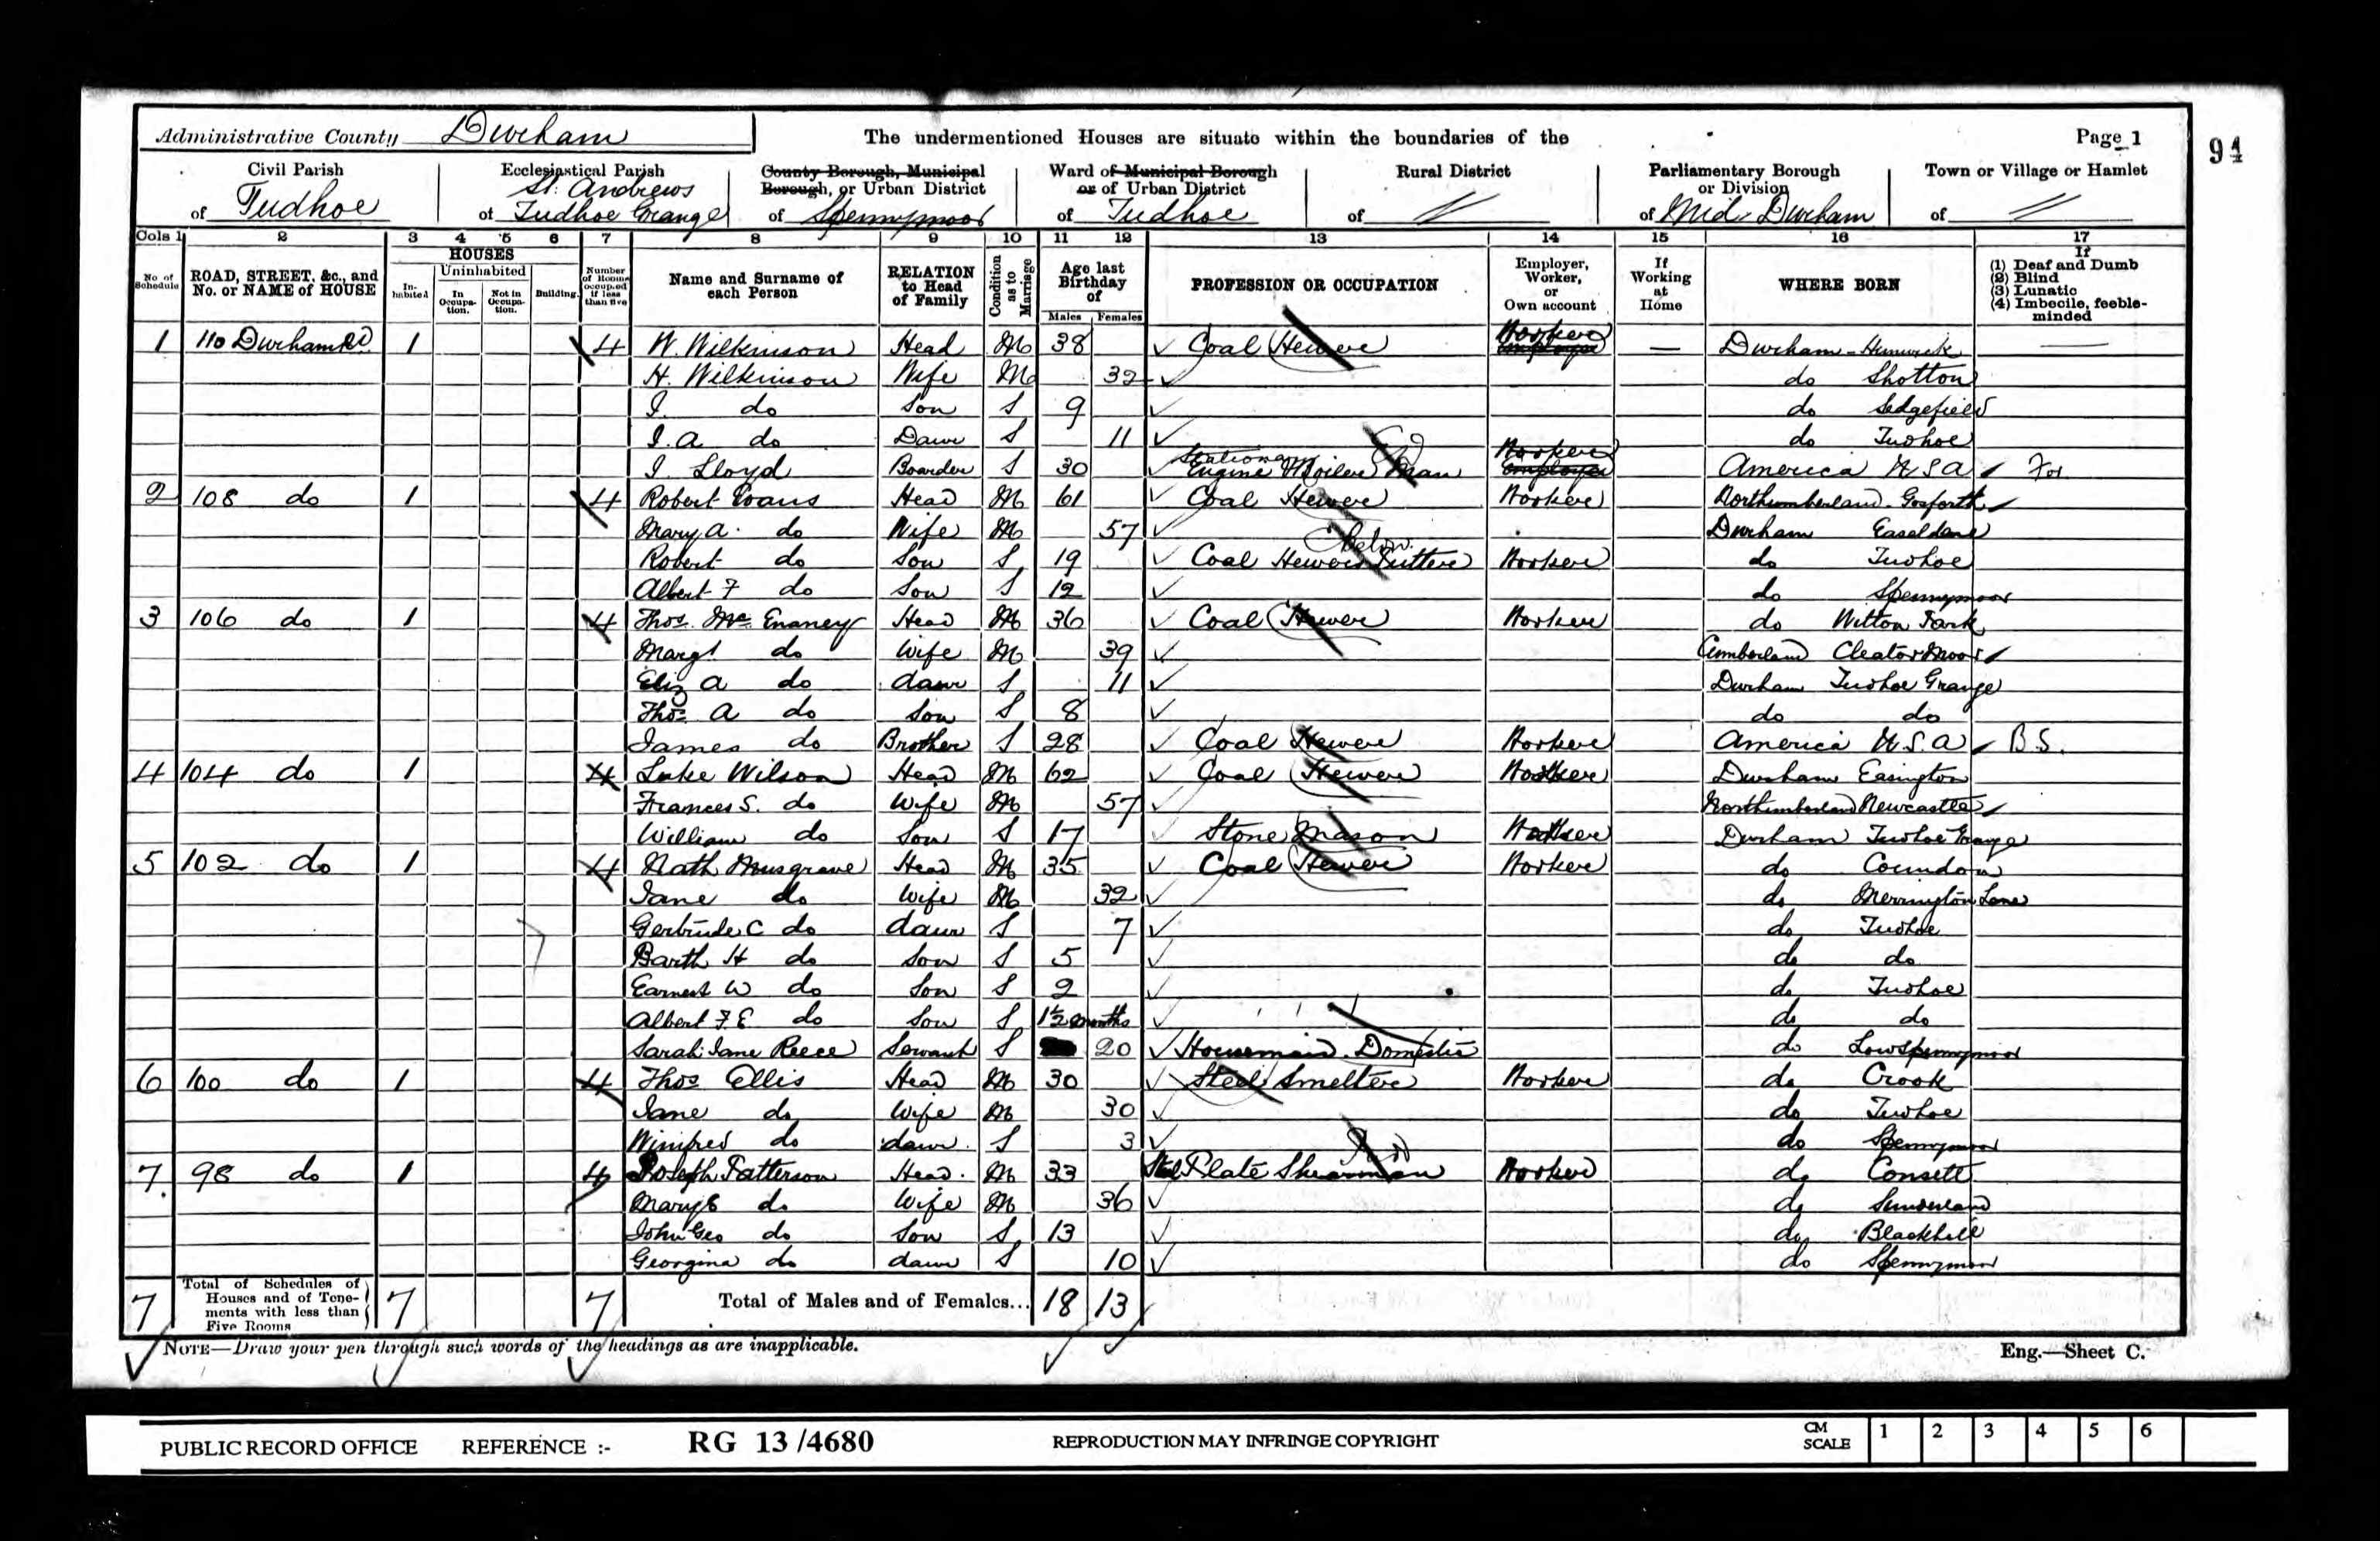 Administrative County Durham The undermentioned Houses are situate within the boundaries of the Page 1 94
Civil Parish Ecclesiastical Parish County Borough, Municipal Borough, or Urban District Ward of Municipal Borough or of Urban District Rural District Parliamentary Borough or Division Town or Village or Hamlet
of Tudhoe of St. Andrews Tudhoe Grange of Spennymoor of Tudhoe of of Mid. Durham of
Cols 1 2 3 4 5 6 7 8 9 10 11 12 13 14 15 16 17
No of Schedule ROAD, STREET, &c., and No. or NAME of HOUSE HOUSES Inhabited Uninhabited In Occupation. Not in Occupation. Building. Number of Rooms occupied if less than five Name and Surname of each Person RELATION to Head of Family Condition as to Marriage Age last Birthday of Males Females PROFESSION OR OCCUPATION Employer, Worker, or Own account If Working at Home WHERE BORN If (1) Deaf and Dumb (2) Blind (3) Lunatic (4) Imbecile, feeble-minded
1 110 Durham Rd 1 4 W. Wilkinson Head M 38 Coal Hewer Worker — Durham
H. Wilkinson Wife M 32 do Shotton
I. do Son S 9 do Sedgefield
I. A do Daur S 11 do Tudhoe
I Lloyd Boarder S 30 Stationary Engine Boiler Man Worker America U S A For
2 108 do 1 4 Robert Evans Head M 61 Coal Hewer Worker Northumberland. Gosforth
Mary A. do Wife M 57 Durham
Robert do Son S 19 Coal Hewer Putter below Worker do Tudhoe
Albert F do Son S 12 do Spennymoor
3 106 do 1 4 Thos. Mc Enaney Head M 36 Coal Hewer Worker do Witton Park
Margt do Wife M 39 Cumberland Cleator Moor
Eliz A do daur S 11 Durham Tudhoe Grange
Thos. A do Son S 8 do do
James do Brother S 28 Coal Hewer Worker America U.S.A B.S.
4 104 do 1 4 Luke Wilson Head M 62 Coal Hewer Worker Durham Easington
Frances S. do Wife M 57 Northumberland Newcastle
William do Son S 17 Stone Mason Worker Durham Tudhoe Grange
5 102 do 1 4 Nath Musgrave Head M 35 Coal Hewer Worker do Coundon
Jane do Wife M 32 do Merrington Lane
Gertrude C do daur S 7 do Tudhoe
Barth H do Son S 5 do do
Earnest W do Son S 2 do Tudhoe
Albert F. E do Son S 1½ months do do
Sarah Jane Reece Servant S 20 Housemaid. Domestic do Low Spennymoor
6 100 do 1 4 Thos Ellis Head M 30 Steel Smelter Worker do Crook
Jane do Wife M 30 do Tudhoe
Winifred do daur. S 3 do Spennymoor
7. 98 do 1 4 Joseph Patterson Head. M 33 Steel Plate Shearman Worker do Consett
Mary E do Wife M 36 do Sunderland
John Geo do Son S 13 do Blackhill
Georgina do daur S 10 do Spennymoor
7 Total of Schedules of Houses and of Tenements with less than Five Rooms 7 7 Total of Males and of Females... 18 13
NOTE—Draw your pen through such words of the headings as are inapplicable. Eng.—Sheet C.
PUBLIC RECORD OFFICE REFERENCE :- RG 13 /4680 REPRODUCTION MAY INFRINGE COPYRIGHT CM SCALE 1 2 3 4 5 6